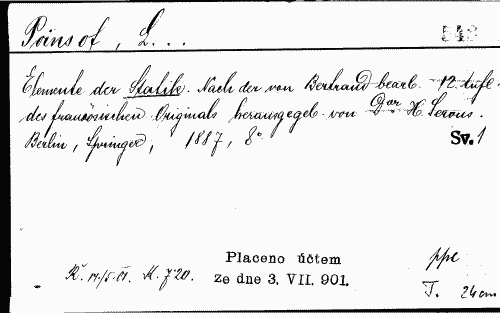 Poinsot, L...
Elemente der Statik. Nach der von Bertrand bearb. 12. Aufl.
des französischen Originals herausgegeb. von Dor H. Servus.
Berlin, Springer, 1887, 8° Sv. 1
Placeno účtem
ze dne 3. VII. 901.
K. 720.
ppe
T. 24cm